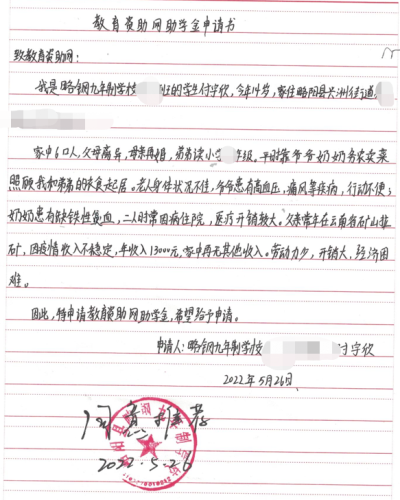 教育资助网助学金申请书
致教育资助网：
我是略钢九年制学校 班的学生付宇欣，今年14岁，家住略阳县兴州街道
家中6口人，父母离异，母亲再婚，弟弟读小学 年级。平时靠爷爷奶奶务农卖菜
照顾我和弟弟的衣食起居。老人身体状况不佳，爷爷患有高血压，痛风等疾病，行动不便；
奶奶患有缺铁性贫血，二人时常因病住院，医疗开销较大。父亲常年在云南省矿山挂
矿，因疫情收入不稳定，年收入13000元，家中再无其他收入。劳动力少，开销大，经济困
难。
因此，特申请教育资助网助学金，希望给予申请。
申请人：略钢九年制学校 付宇欣
2022年5月26日
同意推荐
2022.5.26